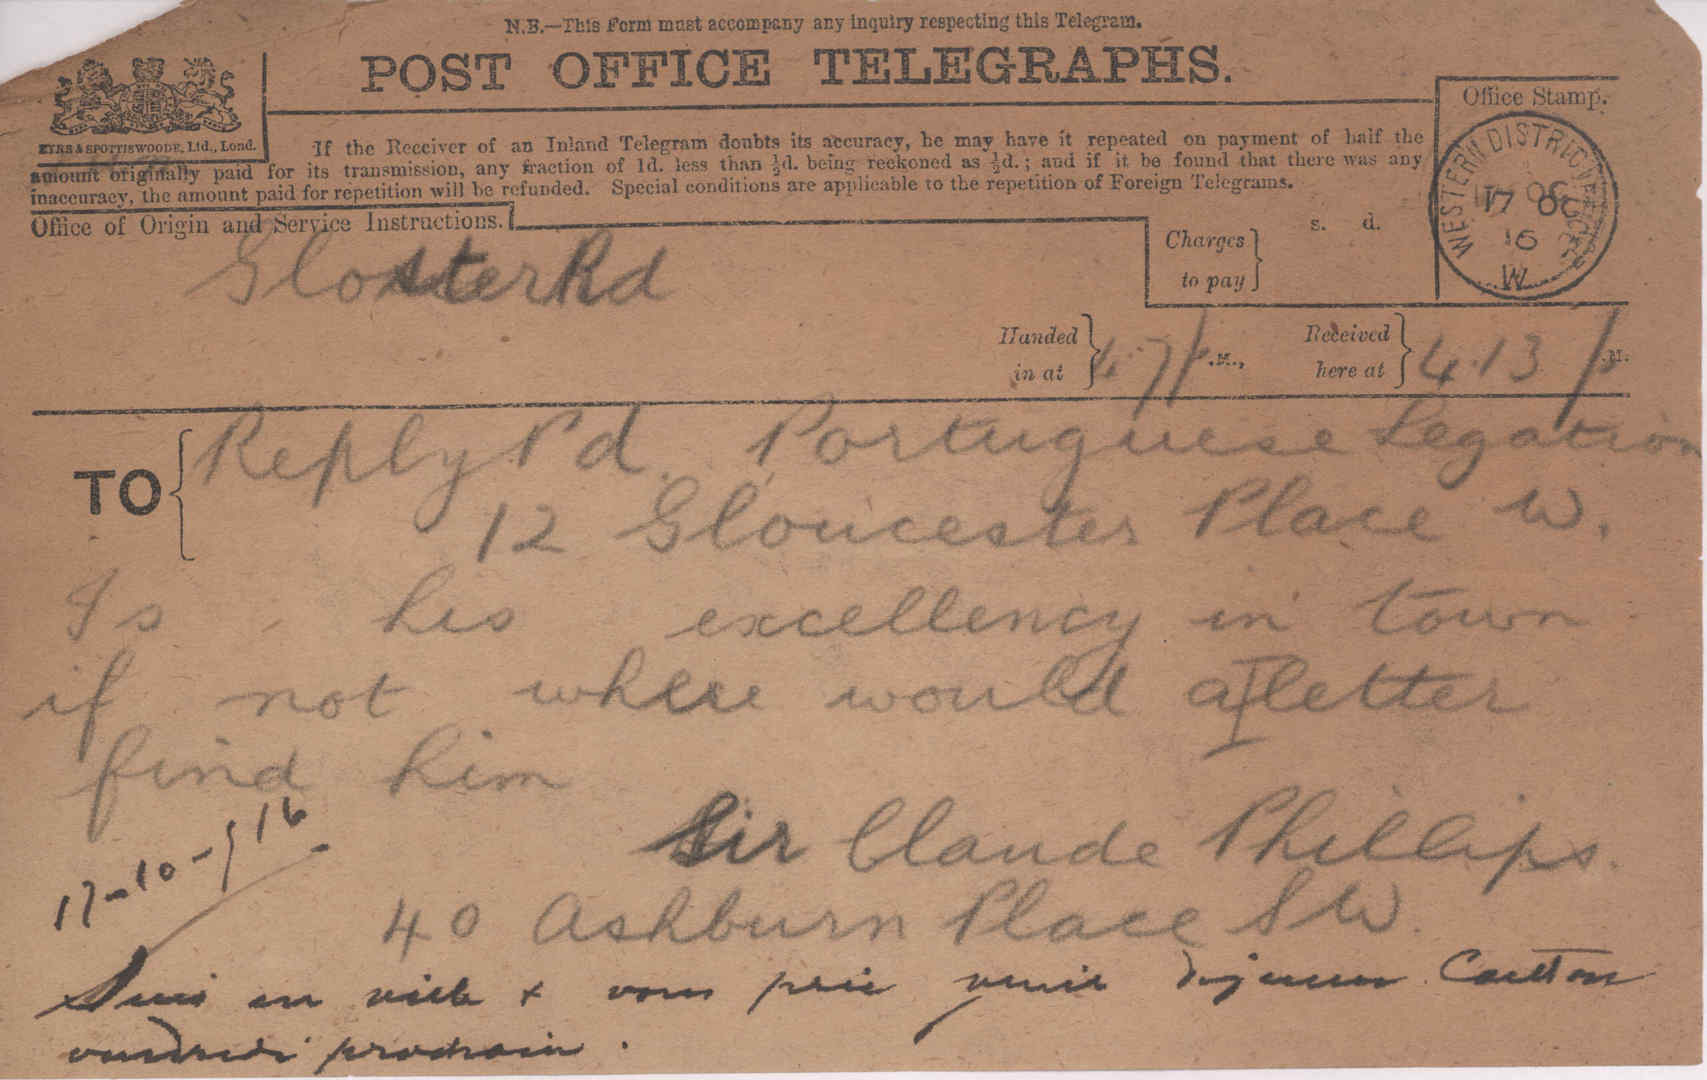 N.B.—This Form must accompany any inquiry respecting this Telegram.
POST OFFICE TELEGRAPHS.
EYRE & SPOTTISWOODE, Ltd., Lond.
If the Receiver of an Inland Telegram doubts its accuracy, he may have it repeated on payment of half the
amount originally paid for its transmission, any fraction of 1d. less than ½d. being reckoned as ½d.; and if it be found that there was any
inaccuracy, the amount paid for repetition will be refunded. Special conditions are applicable to the repetition of Foreign Telegrams.
Office Stamp.
WESTERN DISTRICT
17 OC
16
W.
Office of Origin and Service Instructions.
Charges to pay
s. d.
Gloster Rd
Handed in at 4.7 p .M.,
Received here at 4.13 p .M.
TO
Reply Pd. Portuguese Legation
12 Gloucester Place W.
Is his excellency in town
if not where would a letter
find him
Sir Claude Phillips.
40 Ashburn Place SW.
17-10-916
Suis en ville & vous prie venir dejeuner Carlton
vendredi prochain.